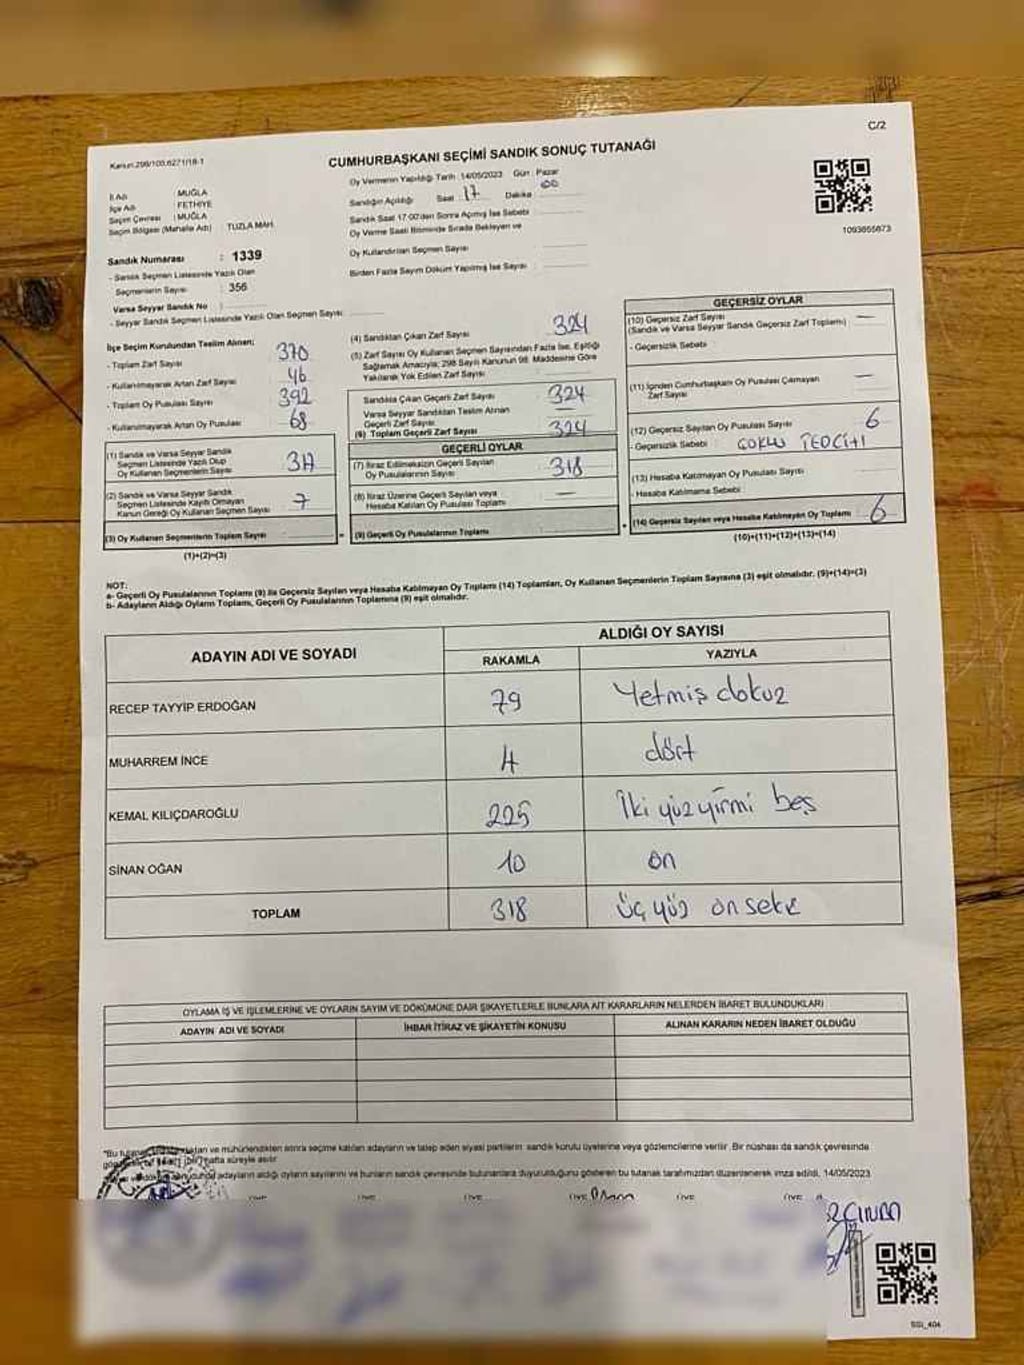 C/2
Kanun:298/100,6271/18-1
CUMHURBAŞKANI SEÇİMİ SANDIK SONUÇ TUTANAĞI
İl Adı : MUĞLA
İlçe Adı : FETHİYE
Seçim Çevresi : MUĞLA
Seçim Bölgesi (Mahalle Adı) TUZLA MAH.
Oy Vermenin Yapıldığı Tarih :14/05/2023 Gün : Pazar
Sandığın Açıldığı Saat : 17 Dakika : 00
Sandık Saat 17:00'den Sonra Açılmış İse Sebebi :
Oy Verme Saati Bitiminde Sırada Bekleyen ve
Oy Kullandırılan Seçmen Sayısı :
Birden Fazla Sayım Döküm Yapılmış İse Sayısı :
1093655673
Sandık Numarası : 1339
- Sandık Seçmen Listesinde Yazılı Olan
Seçmenlerin Sayısı : 356
Varsa Seyyar Sandık No :
- Seyyar Sandık Seçmen Listesinde Yazılı Olan Seçmen Sayısı:
İlçe Seçim Kurulundan Teslim Alınan:
- Toplam Zarf Sayısı : 370
- Kullanılmayarak Artan Zarf Sayısı : 46
- Toplam Oy Pusulası Sayısı : 392
- Kullanılmayarak Artan Oy Pusulası : 68
(1) Sandık ve Varsa Seyyar Sandık
Seçmen Listesinde Yazılı Olup
Oy Kullanan Seçmenlerin Sayısı : 317
(2) Sandık ve Varsa Seyyar Sandık
Seçmen Listesinde Kaydı Olmayan
Kanun Gereği Oy Kullanan Seçmen Sayısı : 7
(3) Oy Kullanan Seçmenlerin Toplam Sayısı :
(1)+(2)=(3)
(4) Sandıktan Çıkan Zarf Sayısı : 324
(5) Zarf Sayısı Oy Kullanan Seçmen Sayısından Fazla İse, Eşitliği
Sağlamak Amacıyla; 298 Sayılı Kanunun 98. Maddesine Göre
Yakılarak Yok Edilen Zarf Sayısı :
Sandıkta Çıkan Geçerli Zarf Sayısı : 324
Varsa Seyyar Sandıktan Teslim Alınan
Geçerli Zarf Sayısı : —
(6) Toplam Geçerli Zarf Sayısı : 324
GEÇERLİ OYLAR
(7) İtiraz Edilmeksizin Geçerli Sayılan
Oy Pusulalarının Sayısı : 318
(8) İtiraz Üzerine Geçerli Sayılan veya
Hesaba Katılan Oy Pusulası Toplamı : —
(9) Geçerli Oy Pusulalarının Toplamı :
GEÇERSİZ OYLAR
(10) Geçersiz Zarf Sayısı : —
(Sandık ve Varsa Seyyar Sandık Geçersiz Zarf Toplamı)
- Geçersizlik Sebebi :
(11) İçinden Cumhurbaşkanı Oy Pusulası Çıkmayan
Zarf Sayısı : —
(12) Geçersiz Sayılan Oy Pusulası Sayısı : 6
- Geçersizlik Sebebi : ÇOKLU TERCİHİ
(13) Hesaba Katılmayan Oy Pusulası Sayısı :
- Hesaba Katılmama Sebebi :
(14) Geçersiz Sayılan veya Hesaba Katılmayan Oy Toplamı : 6
(10)+(11)+(12)+(13)=(14)
NOT:
a- Geçerli Oy Pusulalarının Toplamı (9) ile Geçersiz Sayılan veya Hesaba Katılmayan Oy Toplamı (14) Toplamları, Oy Kullanan Seçmenlerin Toplam Sayısına (3) eşit olmalıdır. (9)+(14)=(3)
b- Adayların Aldığı Oyların Toplamı, Geçerli Oy Pusulalarının Toplamına (9) eşit olmalıdır.
ADAYIN ADI VE SOYADI ALDIĞI OY SAYISI
RAKAMLA YAZIYLA
RECEP TAYYİP ERDOĞAN 79 Yetmiş dokuz
MUHARREM İNCE 4 dört
KEMAL KILIÇDAROĞLU 225 İki yüz yirmi beş
SİNAN OĞAN 10 on
TOPLAM 318 üç yüz on sekiz
OYLAMA İŞ VE İŞLEMLERİNE VE OYLARIN SAYIM VE DÖKÜMÜNE DAİR ŞİKAYETLERLE BUNLARA AİT KARARLARIN NELERDEN İBARET BULUNDUKLARI
ADAYIN ADI VE SOYADI İHBAR İTİRAZ VE ŞİKAYETİN KONUSU ALINAN KARARIN NEDEN İBARET OLDUĞU
ve mühürlendikten sonra seçime katılan adayların ve talep eden siyasi partilerin sandık kurulu üyelerine veya gözlemcilerine verilir. Bir nüshası da sandık çevresinde
hafta süreyle asılır.
adayların aldığı oyların sayılarını ve bunların sandık çevresinde bulunanlara duyurulduğunu gösteren bu tutanak tarafımızdan düzenlenerek imza edildi. 14/05/2023
ÜYE ÜYE ÜYE ÜYE ÜYE ÜYE
SGİ_404